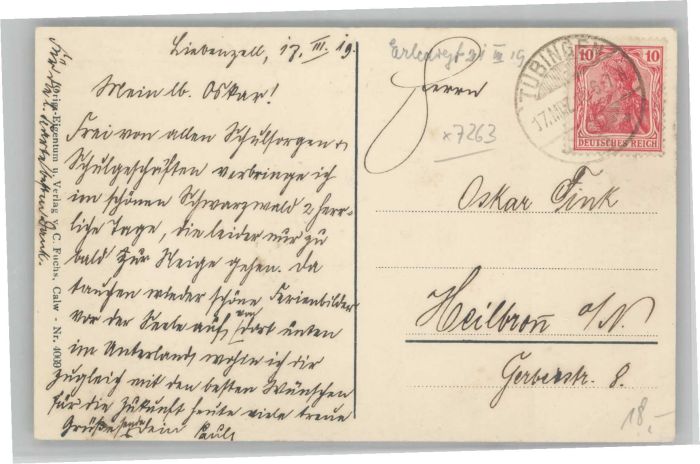 Liebenzell, 17. III. 19.
Mein lb. Oskar!
Frei von allen Schulsorgen u.
Schulgeschäften verbringe ich
im schönen Schwarzwald 2 herr-
liche Tage, die leider nur zu
bald zur Neige gehen. Da
tauchen wieder schöne Ferienbilder
vor der Seele auf, von dort unten
im Unterland, wohin ich dir
zugleich mit den besten Wünschen
für die Zukunft heute viele treue
Grüße sende dein Paul
Orig.-Eigentum u. Verlag v. C. Fuchs, Calw - Nr. 4009
Karte besten Dank.
III 19
Herrn
x7263
Oskar Fink
Heilbronn a/N.
Gerberstr. 8.
18,-
TÜBINGEN
17.MRZ
10 10
DEUTSCHES REICH